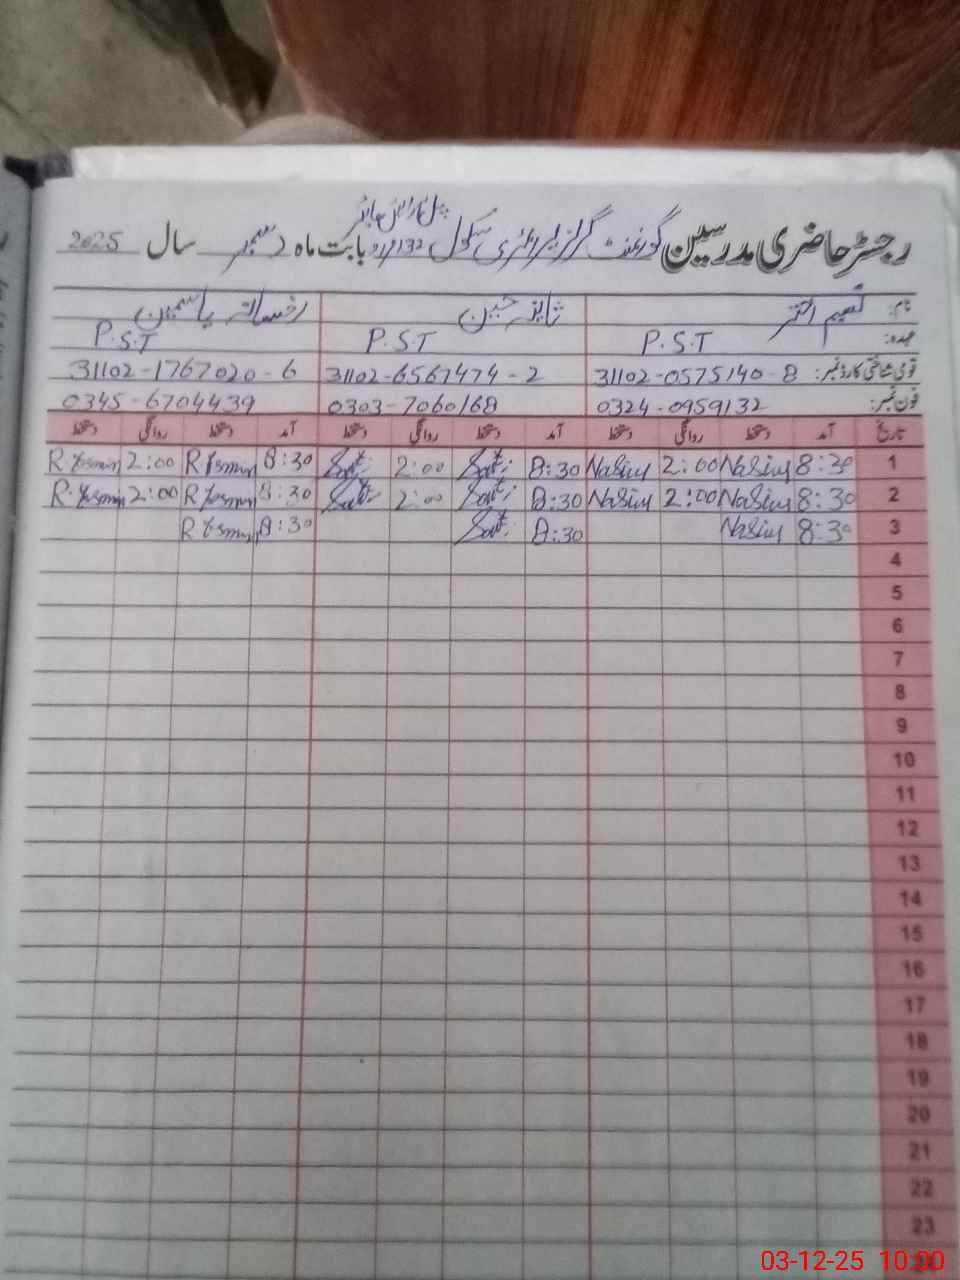 رجسٹر حاضری مدرسین گورنمنٹ گرلز پرائمری سکول بابت ماہ دسمبر سال 2025
نام: نسیم اختر رخسانہ یاسمین
عہدہ: P.S.T P.S.T P.S.T
قومی شناختی کارڈ نمبر: 31102-0575140-8 31102-6567474-2 31102-1767020-6
فون نمبر: 0324-0959132 0303-7060168 0345-6704439
تاریخ آمد دستخط روانگی دستخط آمد دستخط روانگی دستخط آمد دستخط روانگی دستخط
1 8:30 2:00 8:30 2:00 8:30 R.Yasmin 2:00 R.Yasmin
2 8:30 2:00 8:30 2:00 8:30 R.Yasmin 2:00 R.Yasmin
3 8:30 8:30 8:30 R.Yasmin
4
5
6
7
8
9
10
11
12
13
14
15
16
17
18
19
20
21
22
23
03-12-25 10:00